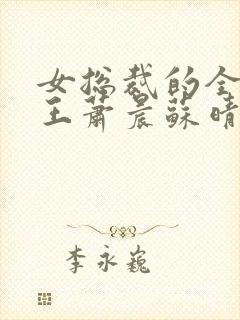 女总裁的全
王萧晨苏晴
李永巍